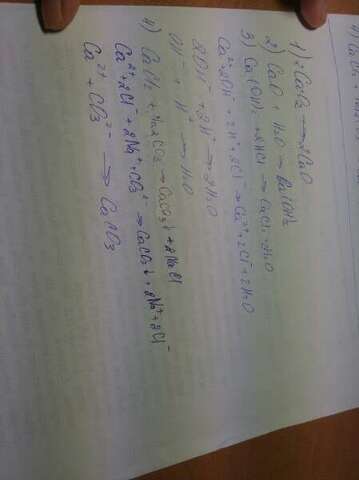 1) 2Ca+O2 → 2CaO
2) CaO + H2O → Ba(OH)2
3) Ca(OH)2 + 2HCl → CaCl2 + 2H2O
Ca²⁺ + 2OH⁻ + 2H⁺ + 2Cl⁻ → Ca²⁺ + 2Cl⁻ + 2H2O
2OH⁻ + 2H⁺ → 2H2O
OH⁻ + H⁺ → H2O
4) CaCl2 + Na2CO3 → CaCO3↓ + 2NaCl
Ca²⁺ + 2Cl⁻ + 2Na⁺ + CO3²⁻ → CaCO3↓ + 2Na⁺ + 2Cl⁻
Ca²⁺ + CO3²⁻ → CaCO3